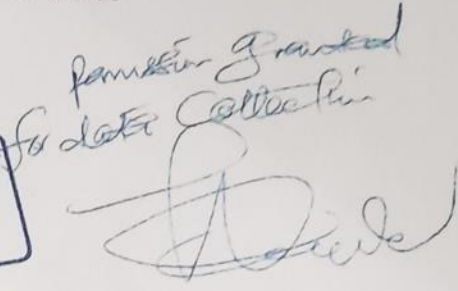 Permission granted
for data Collection